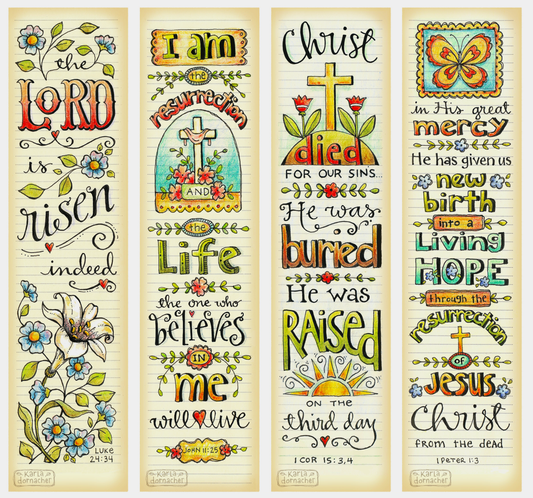 the
LORD
is
risen
indeed
LUKE
24:34
Karla
dornacher
I am
the
resurrection
AND
the
Life
the one who
believes
IN
me
will live
JOHN 11:25
Karla
dornacher
Christ
died
FOR OUR SINS...
He was
buried
He was
RAISED
ON THE
third day
1 COR 15:3,4
Karla
dornacher
in His great
mercy
He has given us
new
birth
into a
Living
HOPE
through the
resurrection
of
JESUS
Christ
FROM THE DEAD
1 PETER 1:3
Karla
dornacher